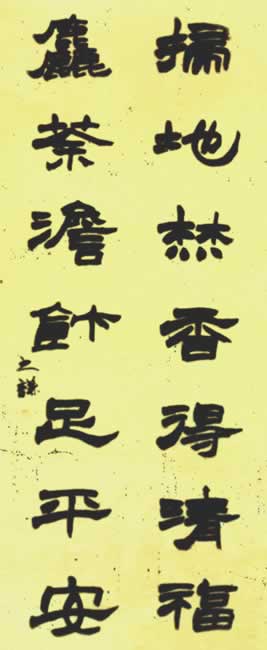 掃地焚香得清福
麤茶澹飰足平安
之謙